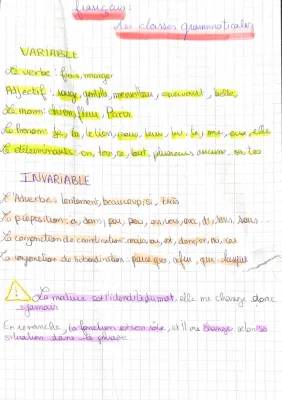 français:
Les classes grammaticales
VARIABLE
Le verbe: finir, manger
Adjectif: rouge, gentille, merveilleux, belle
Le nom: fleur, Paris
Le pronom: je, le tien, nous, leur, lui, la, me, eux, elle
Le déterminant: un, ton, ce, tout, plusieurs, aucune, sa, tes
INVARIABLE
L'Adverbe: lentement, beaucoup, si, très
La préposition: a, dans, par, pour, en, vers, avec, de, sans, sous
La conjonction de coordination: mais, ou, et, donc, or, ni, car
La conjonction de subordination: parce que, afin que, lorsque
La nature est l'identité du mot, elle ne change donc
jamais
En revanche, la fonction est son role, et il va change selon sa
situation dans la phrase